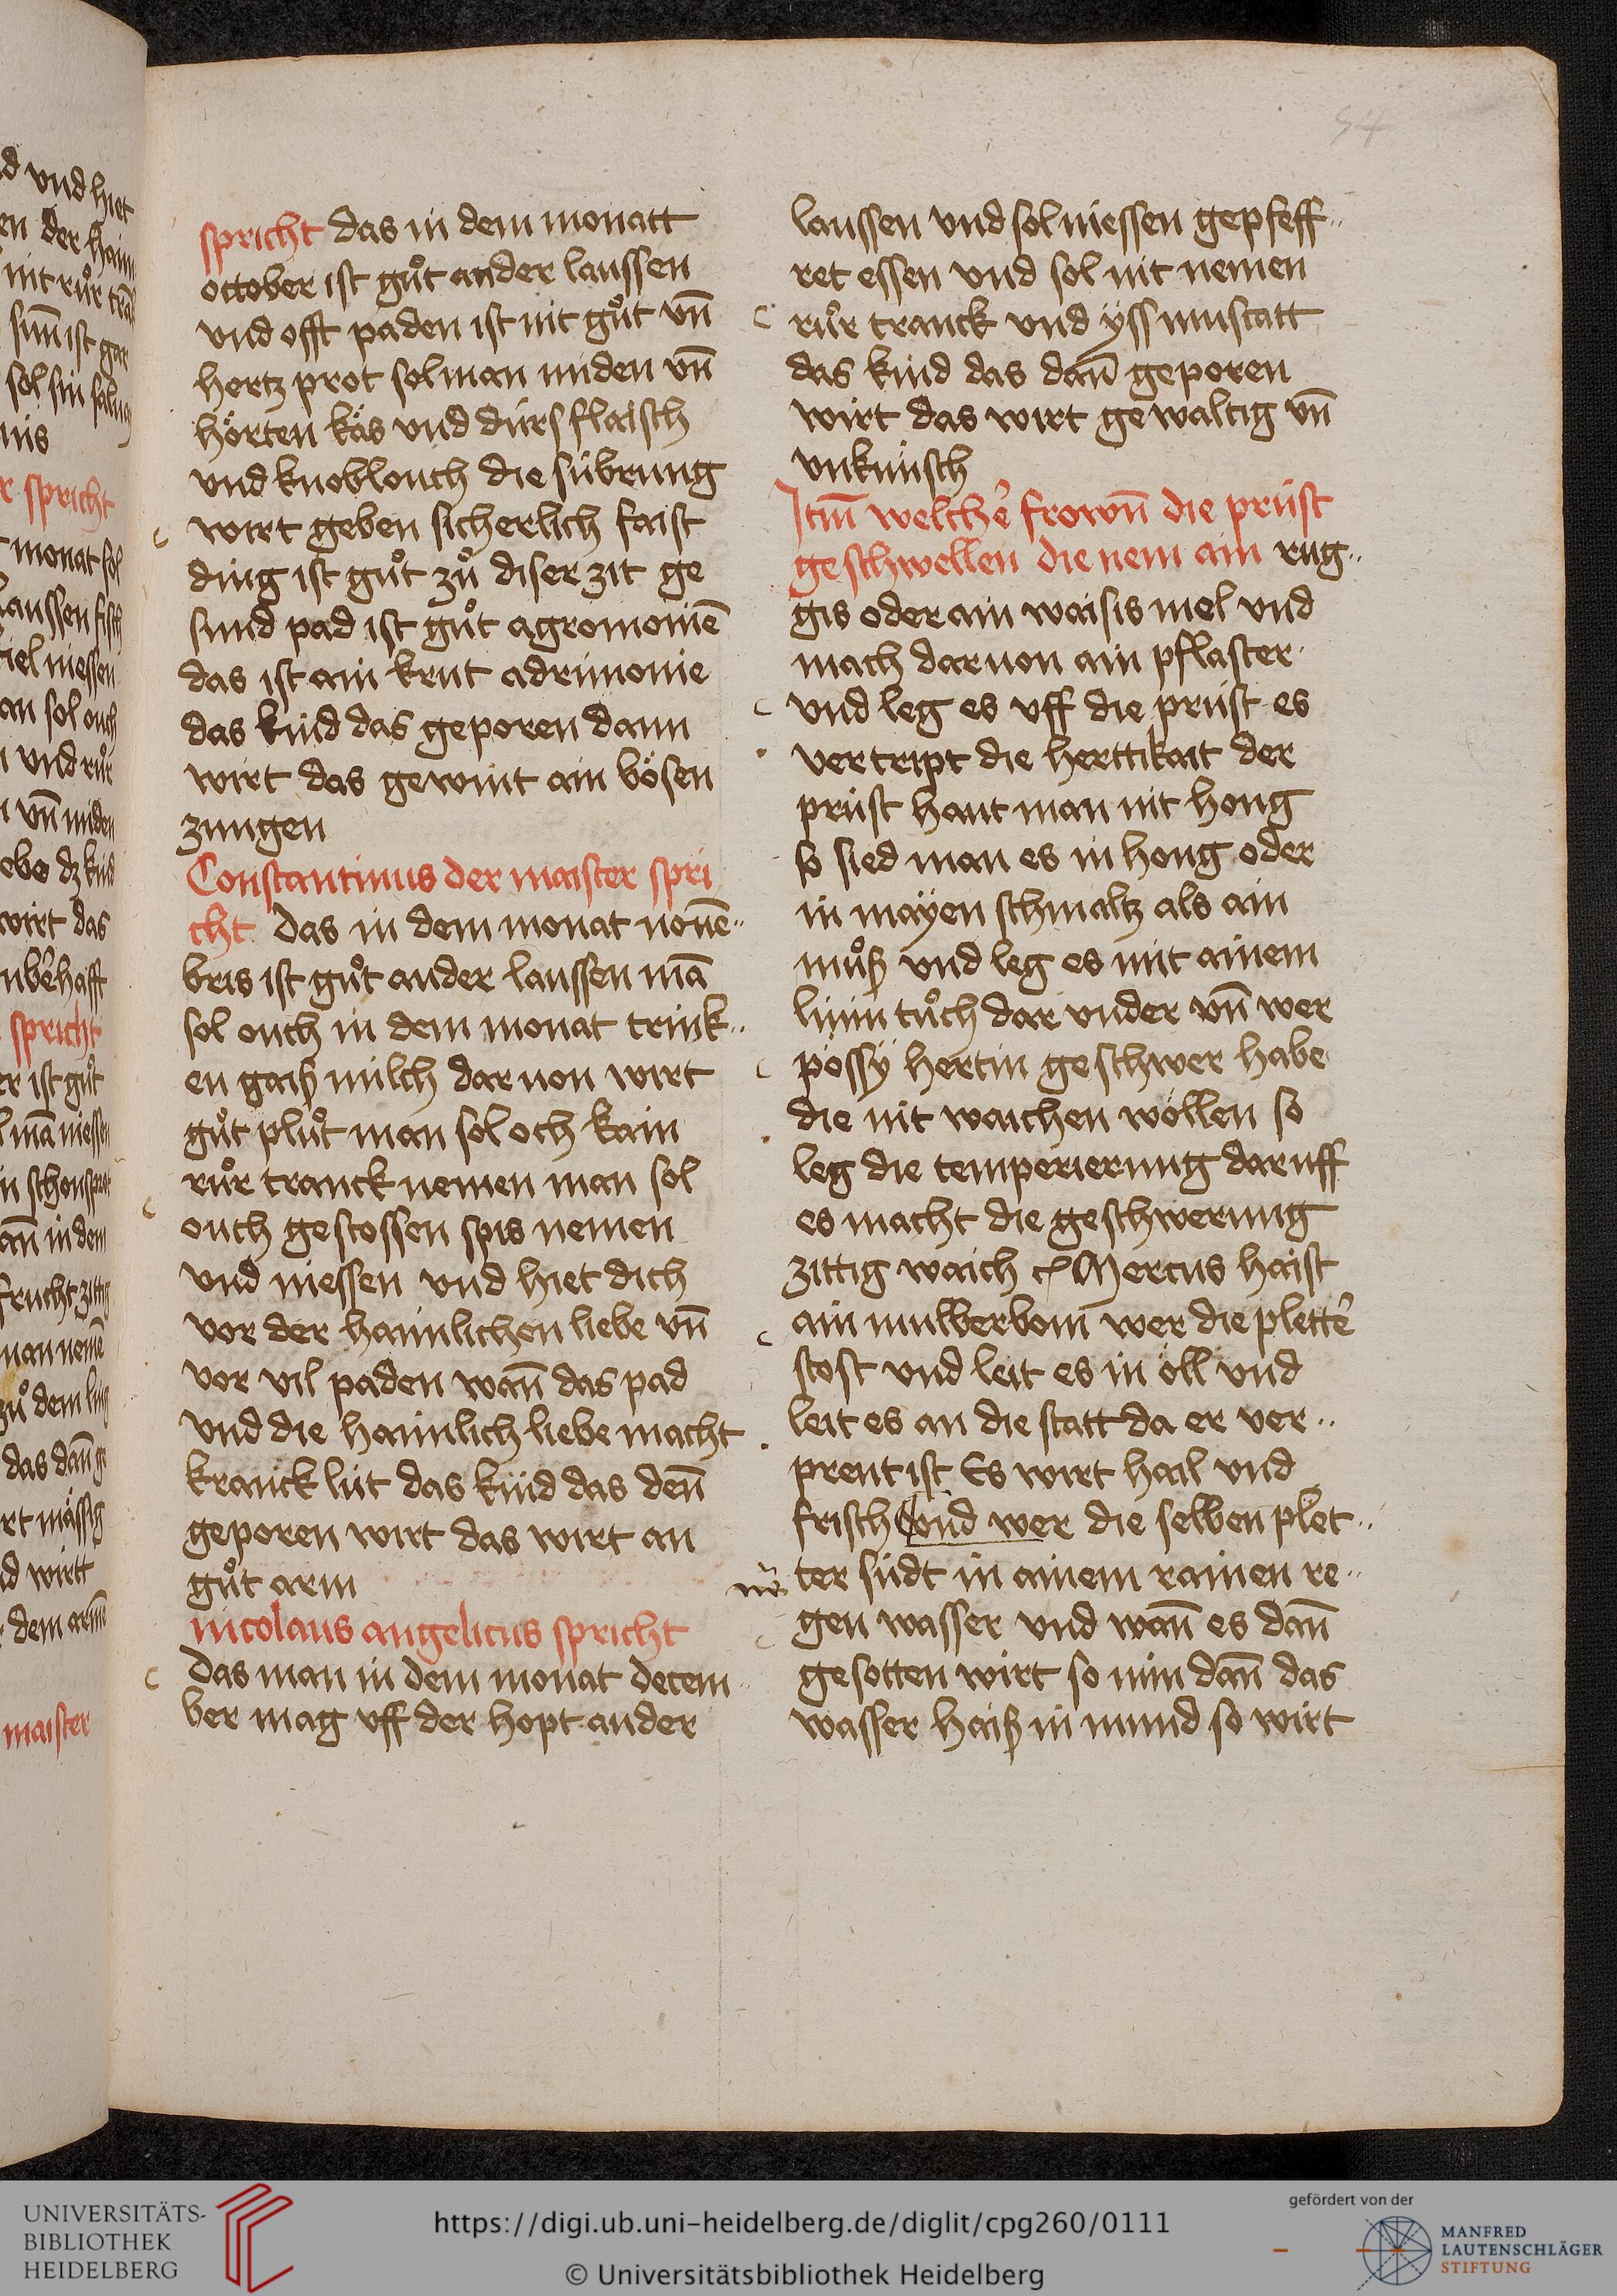 54
spricht das in dem monatt
october ist guͦt ander laussen
vnd offt paden ist nit guͦt vn̄
hertz prot sol man miden vn̄
hörten käs vnd dürs flaisch
vnd knoblouch die sübrung
wirt geben sicherlich faist
ding ist guͦt zuͦ diser zit ge
sund pad ist guͦt agromonie̅
das ist ain krut adrimonie
das kind das geporen dann
wirt das gewint ain bösen
zungen
Constantinus der maister spri
cht das in dem monat noue̅
bris ist guͦt ander laussen ma̅
sol ouch in dem monat trink
en gaiß milch dar von wirt
guͦt pluͦt man sol och kain
ruͦr tranck nemen man sol
ouch gestossen spis nemen
vnd niessen vnd hiet dich
vor der haimlichen liebe vn̄
vor vil paden wan̄ das pad
vnd die haimlich liebe macht
kranck lüt das kind das den̄
geporen wirt das wirt an
guͦt arm
nicolaus angelicus spricht
das man in dem monat decem
ber mag vff der hopt ander
laussen vnd sol niessen gepfeff
ret essen vnd sol nit nemen
ruͦr tranck vnd yss muscatt
das kind das dan̄ geporen
wirt das wirt gewaltig vn̄
vnkünsch
Itm̄ welche̅ frown̄ die prüst
geschwellen die nem ain rug
gis oder ain waisis mel vnd
mach daruon ain pflaster
vnd leg es vff die prüst es
vertript die herttikait der
prüst haut man nit hong
so sied man es in hong oder
in mayen schmaltz als ain
muͦß vnd leg es mit ainem
linin tuͦch dar vnder vn̄ wer
possy hertin geschwer habe
die nit waichen wöllen so
leg die temperierung daruff
es macht die geschwerung
zittig waich Mercus haist
ain mulberbom wer die plette̅
stost vnd leit es in öll vnd
leit es an die statt da er ver
prent ist Es wirt hail vnd
frisch vnd wer die selben plet
ter südt in ainem rainen re
gen wasser vnd wan̄ es dan̄
gesotten wirt so nim dan̄ das
wasser haiß in mund so wirt
UNIVERSITÄTS-
BIBLIOTHEK
HEIDELBERG
https://digi.ub.uni-heidelberg.de/diglit/cpg260/0111
© Universitätsbibliothek Heidelberg
gefördert von der
MANFRED
LAUTENSCHLÄGER
STIFTUNG